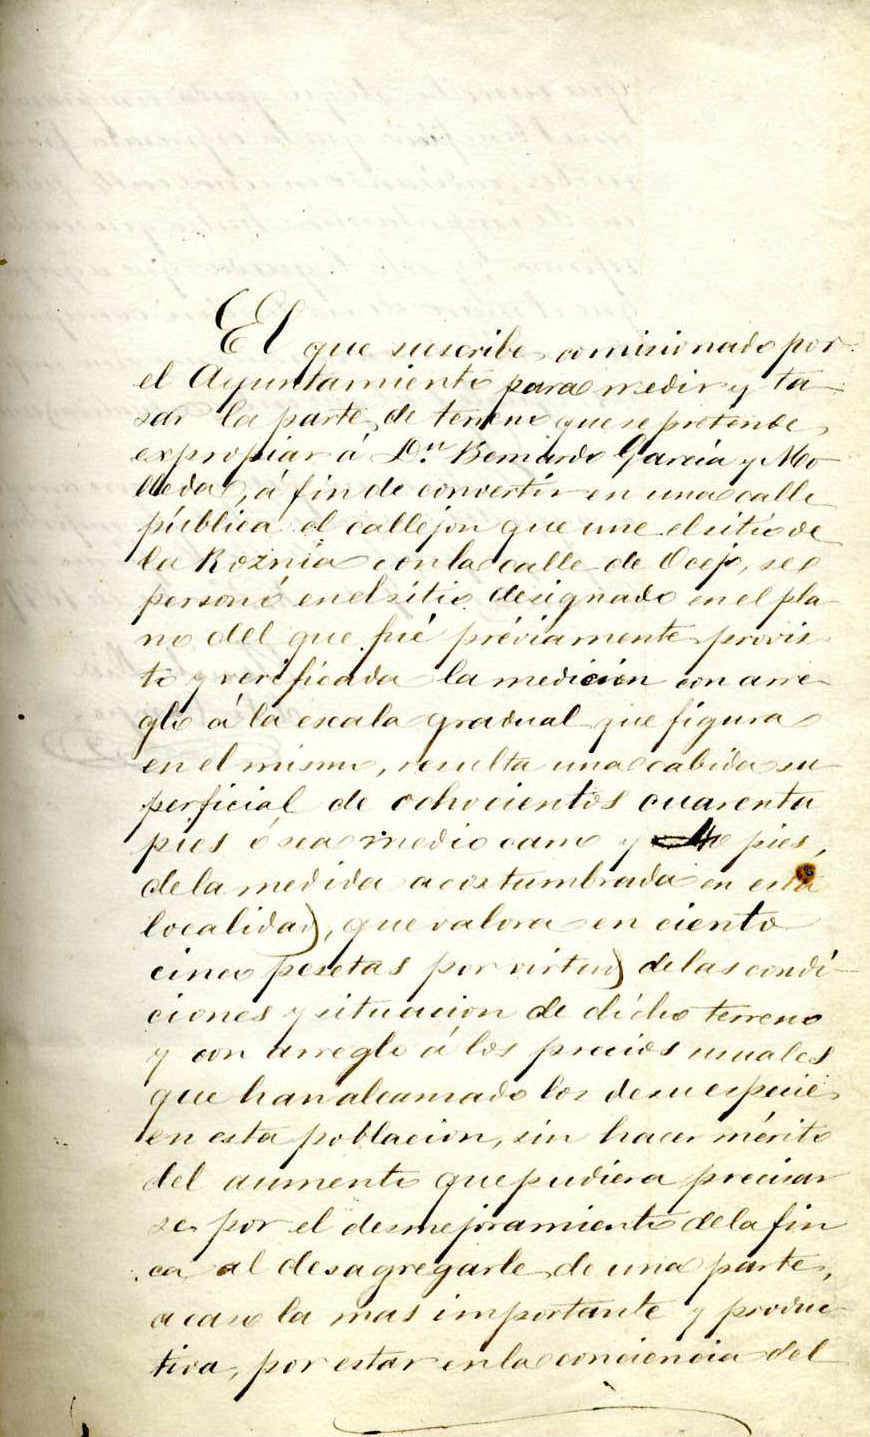 El que suscribe comisionado por
el Ayuntamiento para medir y ta
sar la parte de terreno que se pretende
expropiar á Dn. Bernardo García y Mo
lleda, á fin de convertir en una calle
pública el callejon que une el sitio de
la Roznia con la calle de Ocejo, se
personó en el sitio designado en el pla
no del que fué préviamente provis
to y verificada la medicion con arre
glo á la escala gradual que figura
en el mismo, resulta una cabida su
perficial de ochocientos cuarenta
pies ó sea medio carro y pies,
de la medida acostumbrada en esta
localidad, que valora en ciento
cinco pesetas por virtud de las condi-
ciones y situacion de dicho terreno
y con arreglo á los precios usuales
que han alcanzado los de su especie
en esta poblacion, sin hacer mérito
del aumento que pudiera precisar
se por el desmejoramiento de la fin
ca al desagregarle de una parte,
acaso la mas importante y produc-
tiva, por estar en la conciencia del